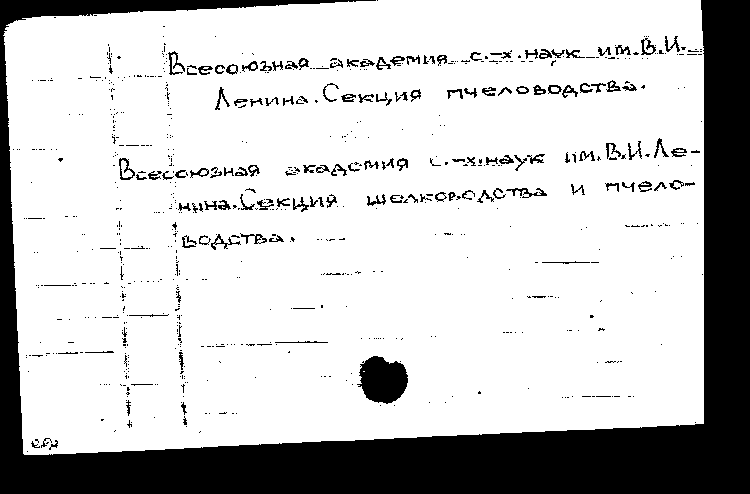 Всесоюзная академия с.-х. наук им. В.И.
Ленина. Секция пчеловодства.
Всесоюзная академия с.-х. наук им. В.И. Ле-
нина. Секция шелководства и пчело-
водства.